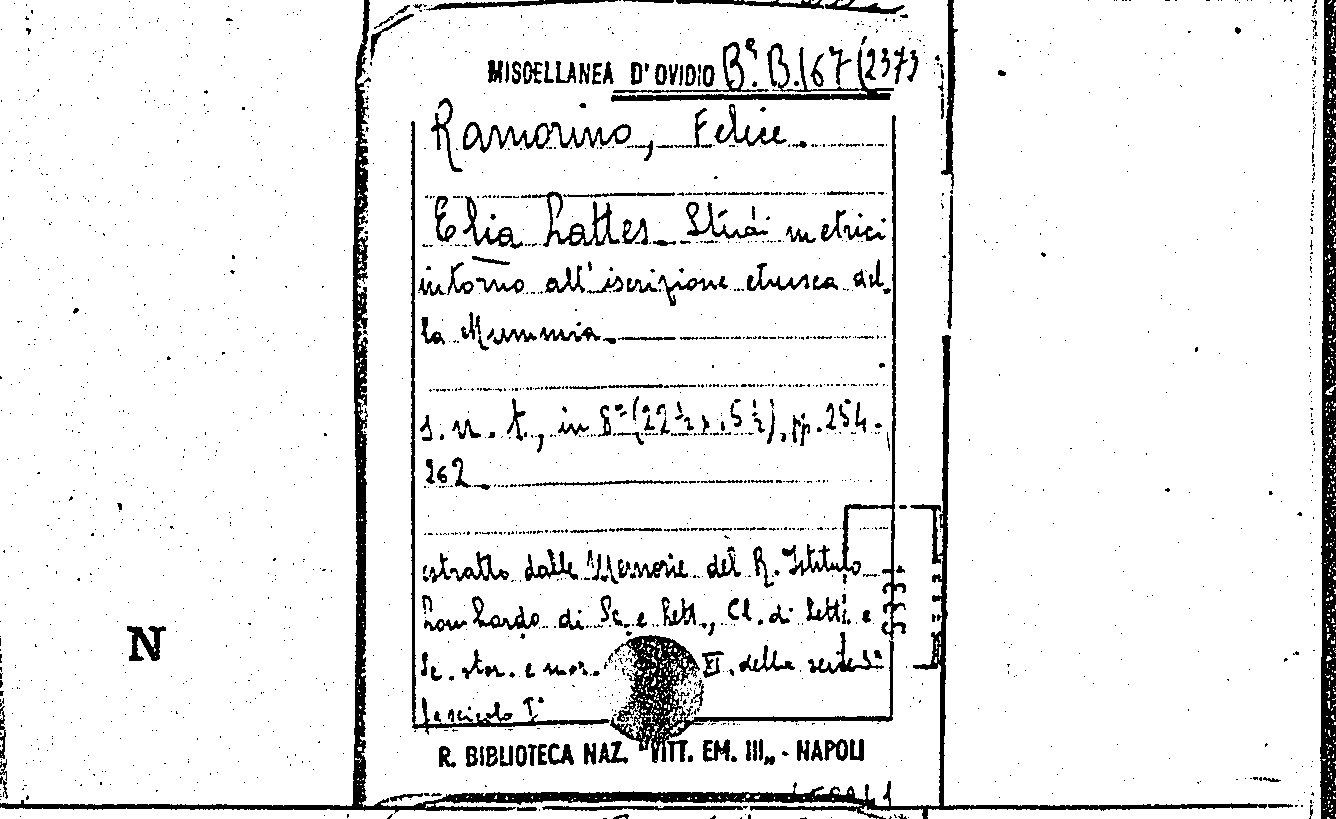 MISCELLANEA D'OVIDIO Bª. B. 167 (2373
Ramorino, Felice.
Elia Lattes. Studi metrici
intorno all'iscrizione etrusca del-
la Mummia.
s. n. t., in 8° (22 ½ x 15 ½), pp. 254-
262.
estratto dalle Memorie del R. Istituto
Lombardo di Sc. e Lett., Cl. di Lett. e
Sc. stor. e mor. XI. della serie 3ª
fascicolo I°
N
R. BIBLIOTECA NAZ. "VITT. EM. III„ - NAPOLI